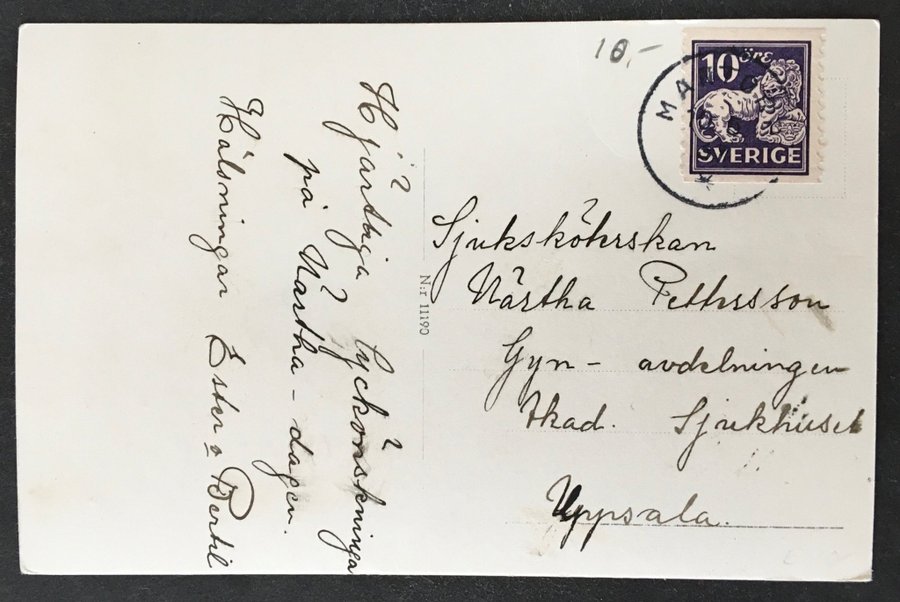 10,-
10 öre
SVERIGE
Hjärtliga lyckönskningar
på Märtha-dagen.
Hälsningar Ester o Bertil
N:r 11190
Sjuksköterskan
Märtha Pettersson
Gyn- avdelningen
Akad. Sjukhuset
Uppsala.